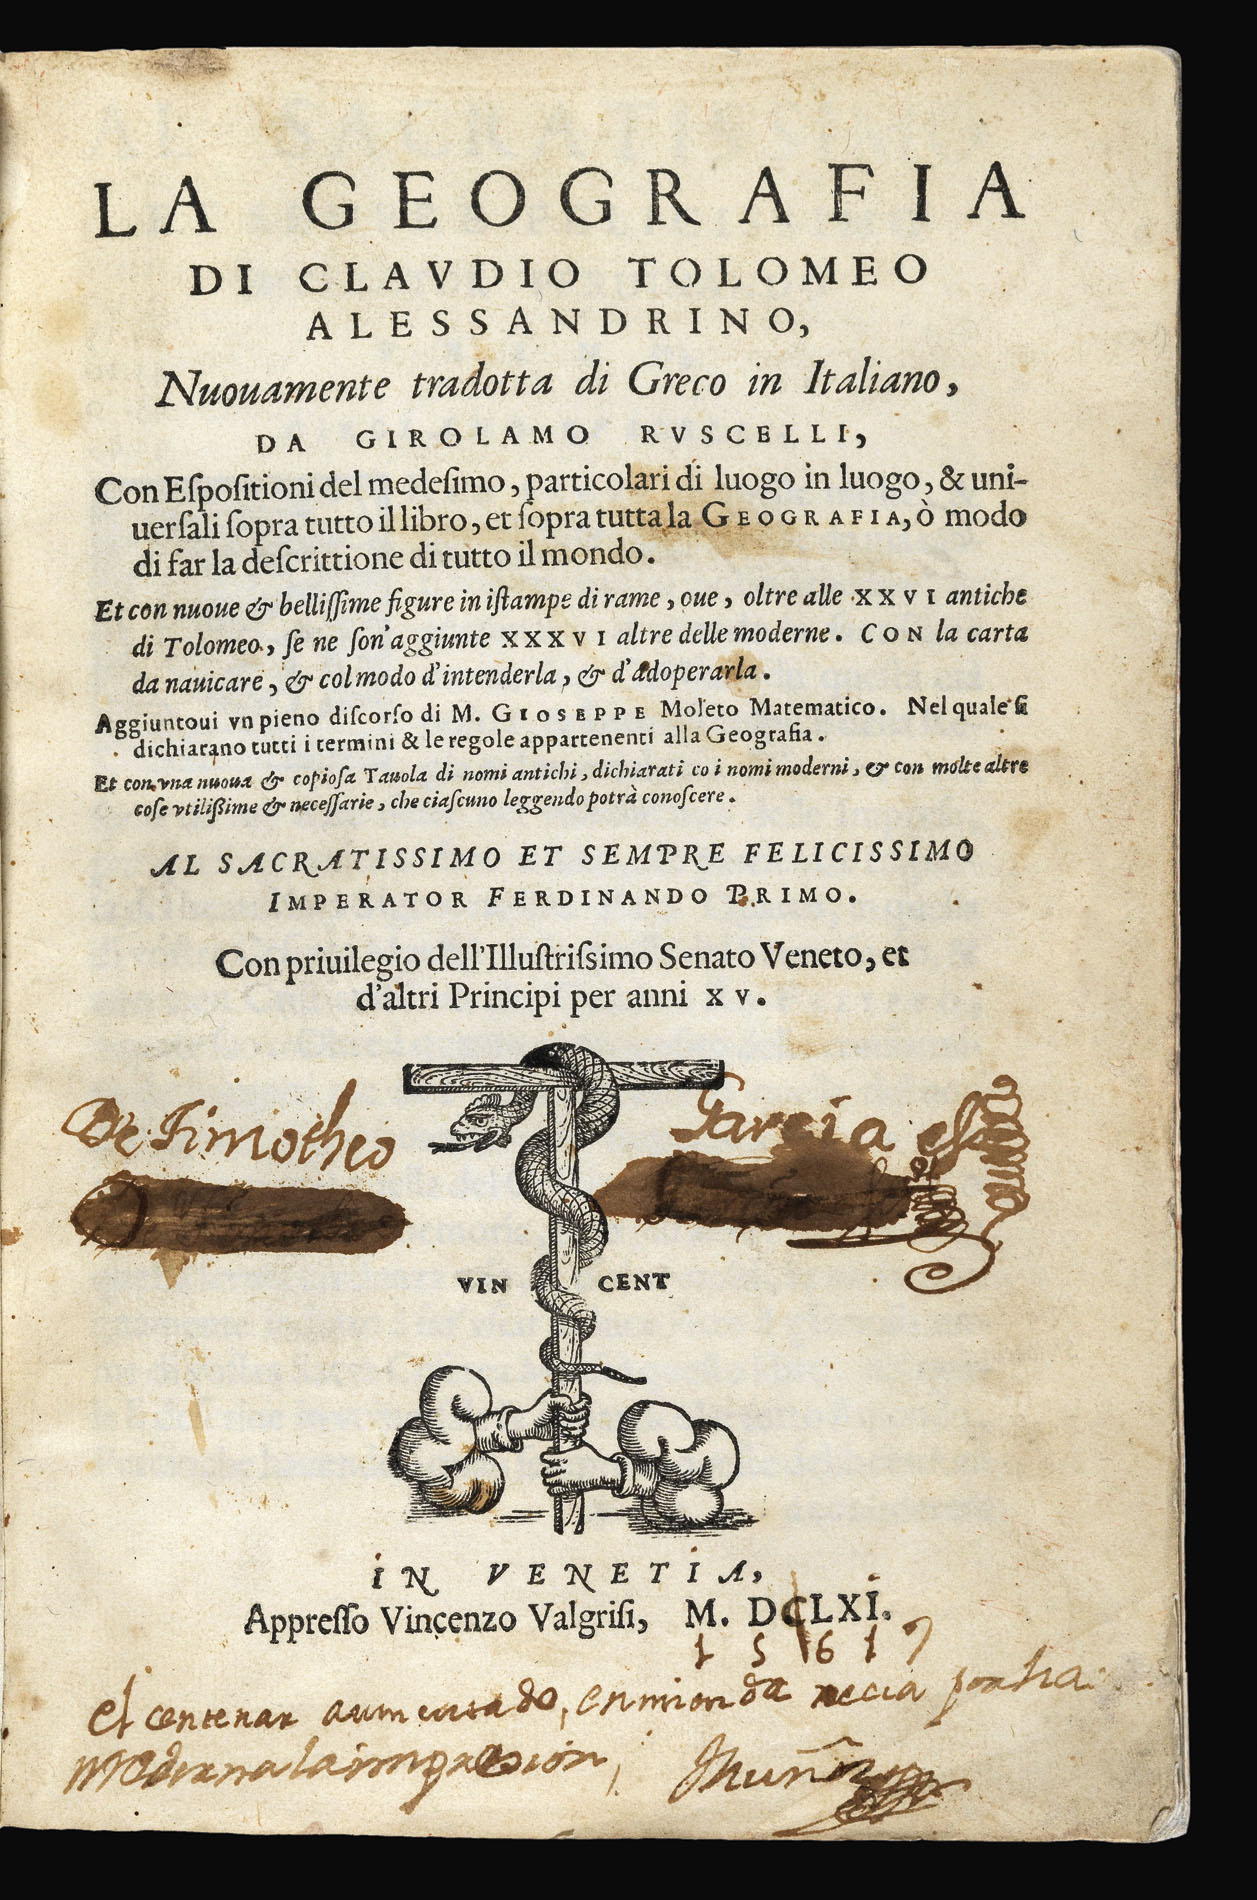 LA GEOGRAFIA
DI CLAVDIO TOLOMEO
ALESSANDRINO,
Nuouamente tradotta di Greco in Italiano,
DA GIROLAMO RVSCELLI,
Con Eſpoſitioni del medeſimo, particolari di luogo in luogo, & uni-
uerſali ſopra tutto il libro, et ſopra tutta la GEOGRAFIA, ò modo
di far la deſcrittione di tutto il mondo.
Et con nuoue & belliſſime figure in iſtampe di rame, oue, oltre alle XXVI antiche
di Tolomeo, ſe ne ſon'aggiunte XXXVI altre delle moderne. CON la carta
da nauicare, & col modo d'intenderla, & d'adoperarla.
Aggiuntoui vn pieno diſcorſo di M. GIOSEPPE Moleto Matematico. Nel quale ſi
dichiarano tutti i termini & le regole appartenenti alla Geografia.
Et con vna nuoua & copioſa Tauola di nomi antichi, dichiarati co i nomi moderni, & con molte altre
coſe vtiliſſime & neceſſarie, che ciaſcuno leggendo potrà conoſcere.
AL SACRATISSIMO ET SEMPRE FELICISSIMO
IMPERATOR FERDINANDO PRIMO.
Con priuilegio dell'Illuſtriſsimo Senato Veneto, et
d'altri Principi per anni XV.
De Timotheo Garcia
VIN CENT
IN VENETIA,
Appreſſo Vincenzo Valgriſi, M. DCLXI.
1 5 6 1
el centenar aumentado, enmienda necia
moderna la impresion